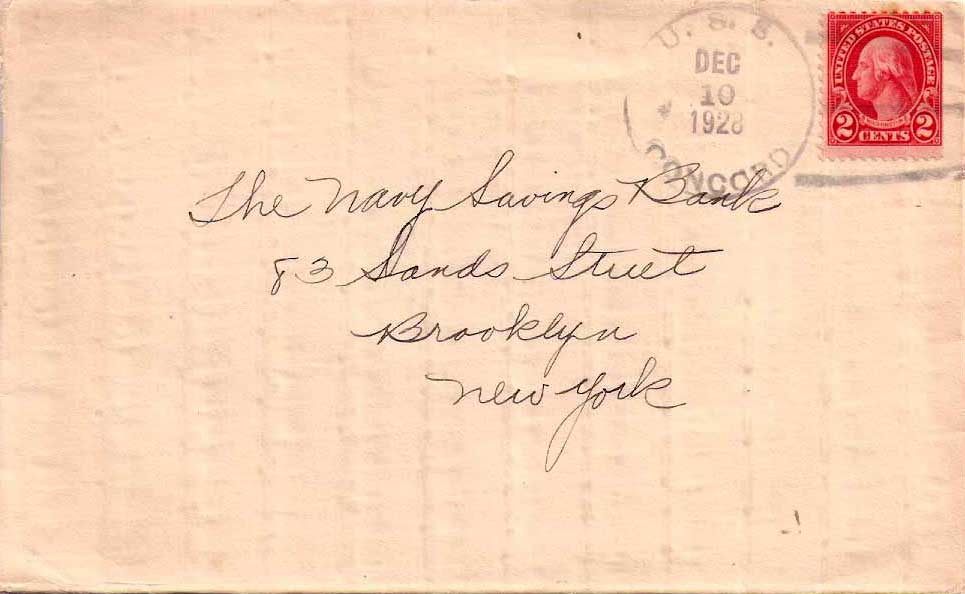 U. S. S.
DEC
10
1928
CONCORD
UNITED STATES POSTAGE
WASHINGTON
2 CENTS 2
The Navy Savings Bank
83 Sands Street
Brooklyn
New York